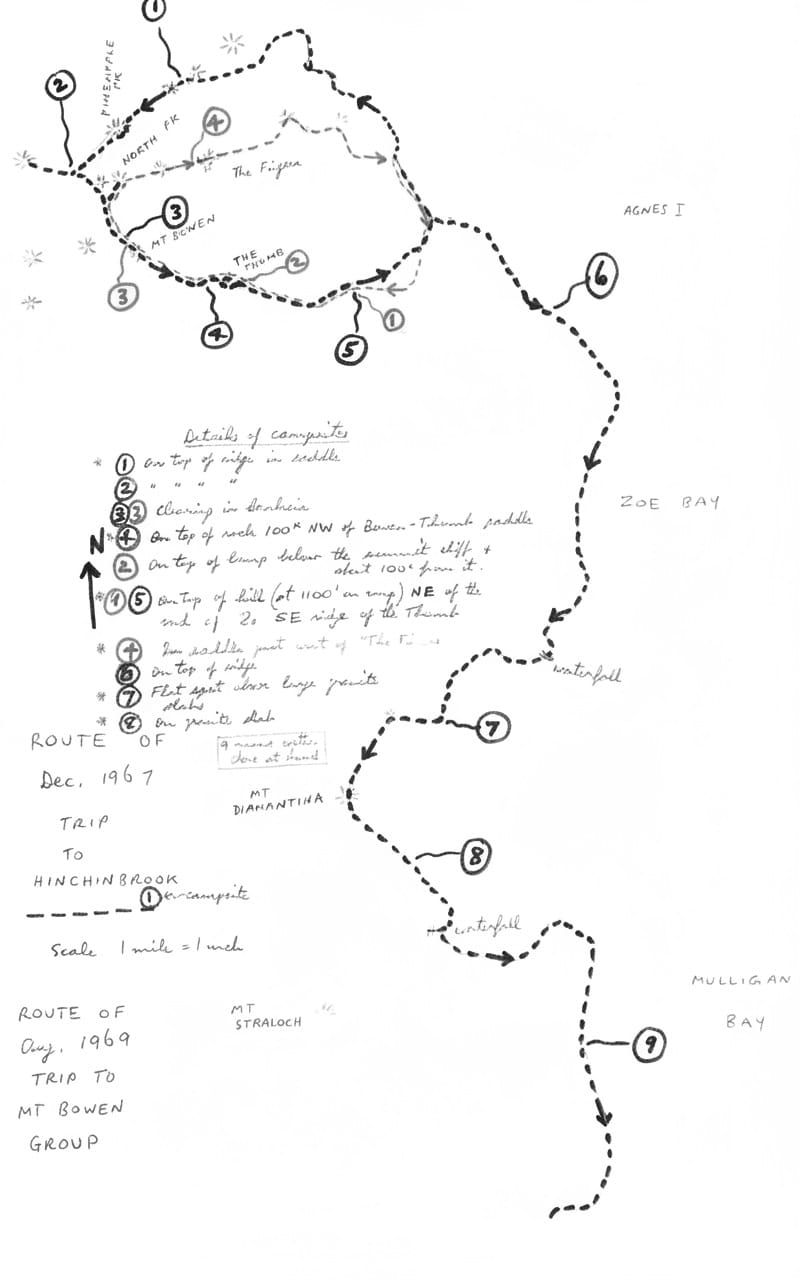 1
2
PINEAPPLE
PK
NORTH PK
4
The Fingers
3
MT BOWEN
THE
THUMB
2
3
4
1
5
AGNES I
6
Details of campsites
* 1 On top of ridge in saddle
2 " " " "
3 3 Clearing in
N * 4 On top of rock 100x NW of Bowen-Thumb saddle
2 On top of hump below the summit cliff +
about 100' from it.
* 1 5 On top of hill (at 1100' on map) NE of the
end of SE ridge of the Thumb
* 4 saddle just west of "The
6 On top of ridge
* 7 Flat spot above large granite
slabs
* 8 On granite slab
9
close at hand
ZOE BAY
waterfall
7
ROUTE OF
Dec. 1967
TRIP
TO
HINCHINBROOK
1 ← campsite
Scale 1 mile = 1 inch
MT
DIAMANTINA
8
waterfall
MULLIGAN
BAY
9
MT
STRALOCH
ROUTE OF
Aug. 1969
TRIP TO
MT BOWEN
GROUP